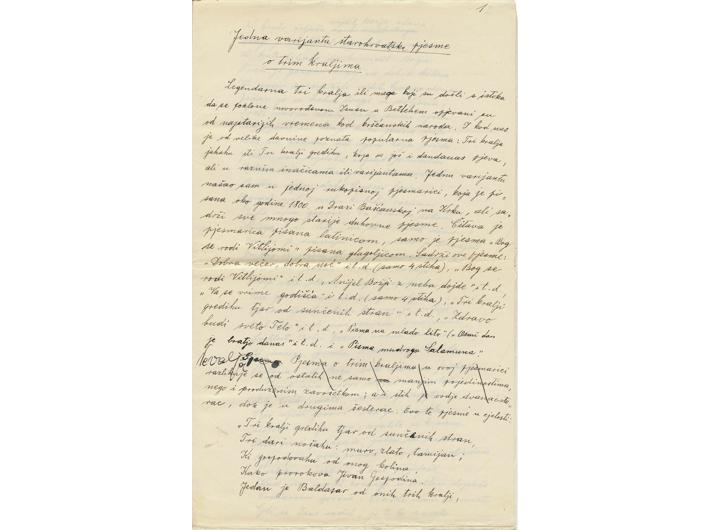 1
Jedna varijanta starohrvatske pjesme
o trim kraljima
Legendarna tri kralja ili maga koji su došli s istoka
da se poklone novorođenom Isusu u Betlehem opjevani su
od najstarijih vremena kod kršćanskih naroda. I kod nas
je od velike davnine poznata popularna pjesma: Tri kralja
jahahu ili Tri kralji gredihu, koja se još i dandanas pjeva,
ali u raznim inačicama ili varijantama. Jednu varijantu
našao sam u jednoj rukopisnoj pjesmarici, koja je pi-
sana oko godine 1806 u Dragi Bašćanskoj na Krku, ali sa-
drži sve mnogo starije duhovne pjesme. Čitava je
pjesmarica pisana latinicom, samo je pjesma „Bog
se rodi Vitlijomi" pisana glagoljicom. Sadrži ove pjesme:
„Dobra večer, dobra noć" i t. d. (samo 4 stiha), „Bog se
rodi Vitlijomi" i t. d. „Anijel Božji z neba dojde" i t. d.
„Va se vrime godišća" i t. d. (samo 4 stiha), „Tri kralji
gredihu tjar od sunčenih stran" i t. d., „Zdravo
budi sveto Telo" i t. d., „Pisma na mlado lito" („Osmi dan
je bratjo danas" i t. d. i „Pisma mudroga Salamuna"
Pjesma o trim kraljima u ovoj pjesmarici
razlikuje se od ostalih ne samo manjim pojedinostima,
nego i produženim završetkom; a stih je ovdje dvanaeste-
rac, dok je u drugima šesterac. Evo te pjesme u cjelosti:
„Tri kralji gredihu tjar od sunčenih stran,
Tri dari nošahu: muro, zlato, tamijan;
Ki gospodovahu od onog kolina
Kako prorokova Ivan Gospodina.
Jedan je Baldasar od onih trih kralji,